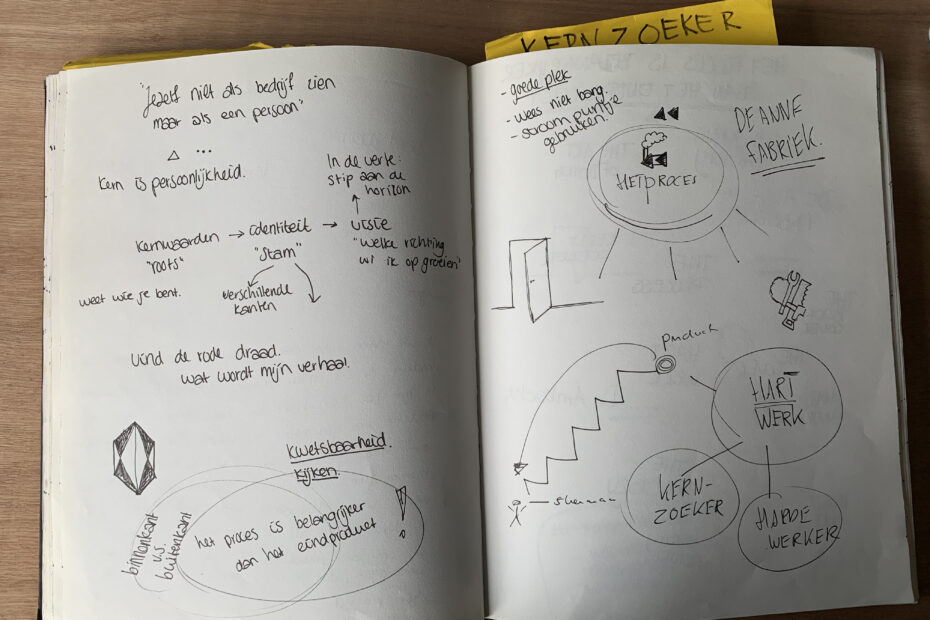 KERN ZOEKER
"Jezelf niet als bedrijf zien
maar als een persoon"
...
Kern is persoonlijkheid.
In de verte:
stip aan de
horizon
Kernwaarden → identiteit → visie
"roots"
"Stam"
"Welke richting
wil ik op groeien"
weet wie je bent.
verschillende
kanten
vind de rode draad.
wat wordt mijn verhaal.
kwetsbaarheid.
kijken.
binnenkant
v.s.
buitenkant
het proces is belangrijker
dan het eindproduct
!
- goede plek
- wees niet bang.
- stroom puntje
gebruiken.
DE ANNE
FABRIEK.
HET PROCES
product
HART
WERK
KERN-
ZOEKER
HARDE
WERKER